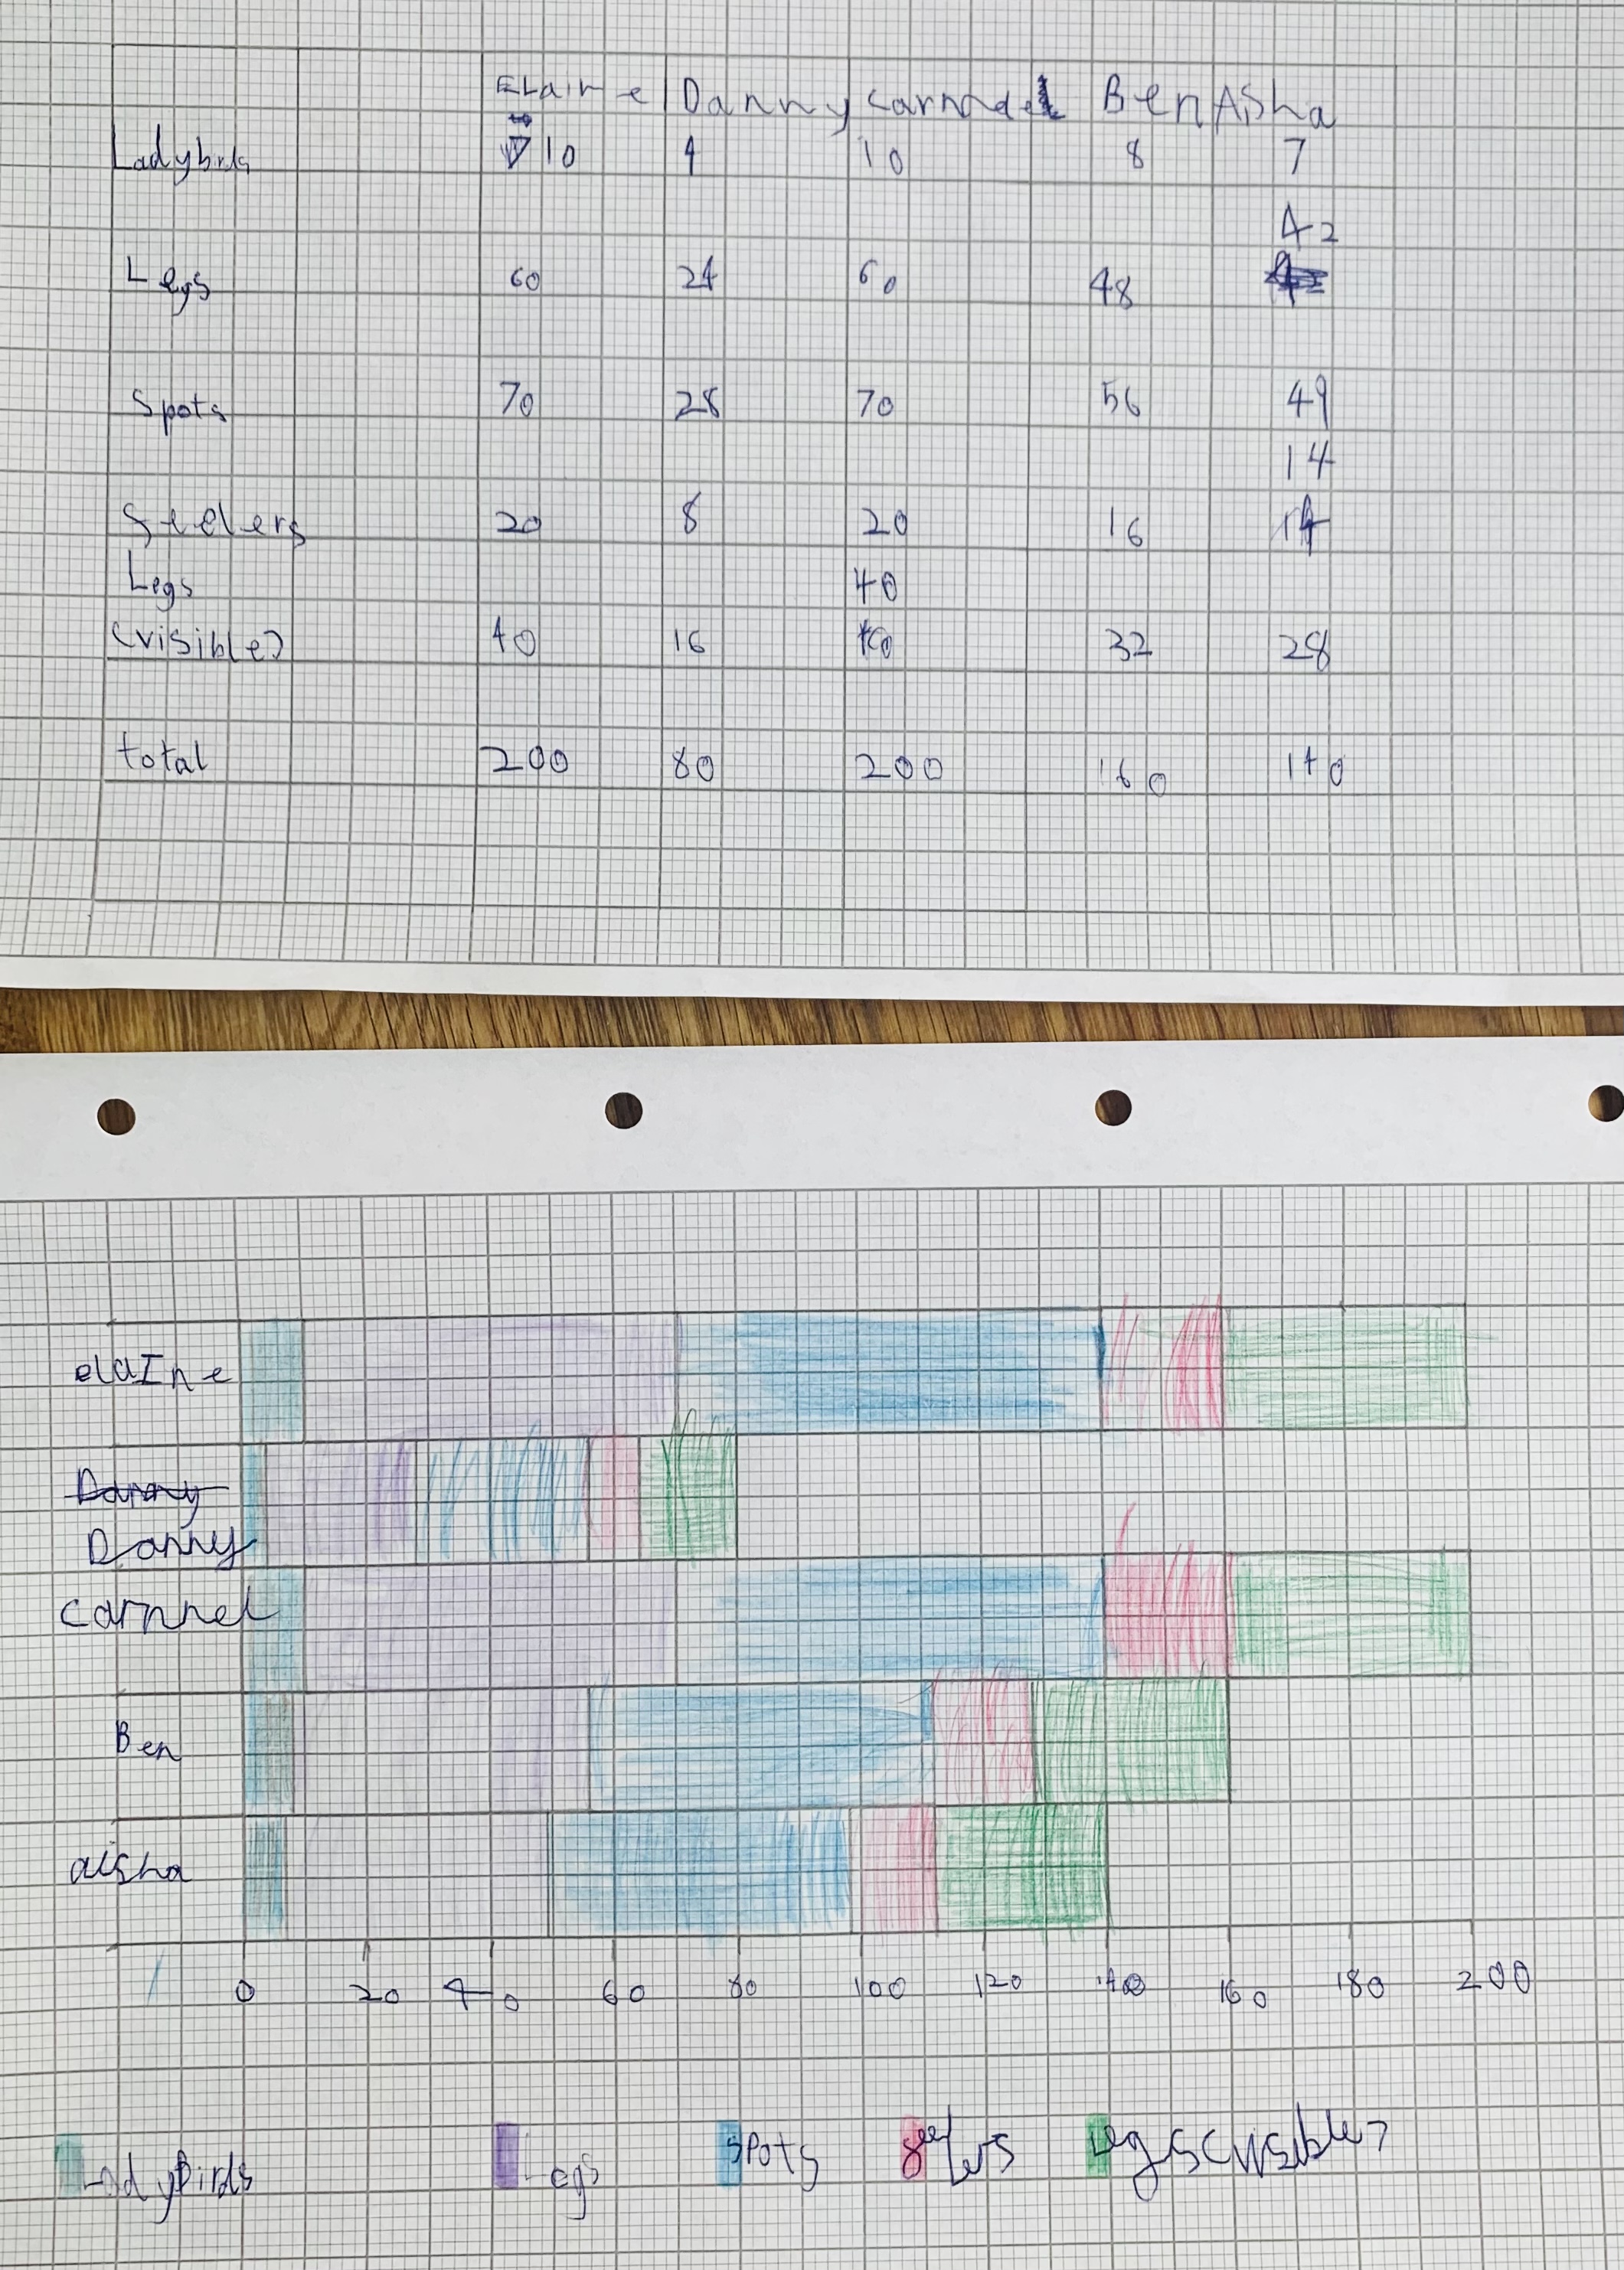 ELaine Danny Carmel Ben Aisha
Ladybirds 10 4 10 8 7
42
Legs 60 24 60 48
Spots 70 28 70 56 49
14
feelers 20 8 20 16 14
Legs 40
(visible) 40 16 40 32 28
total 200 80 200 160 140
elaIne
Danny
Danny
carmel
Ben
aisha
0 20 40 60 80 100 120 140 160 180 200
LadyBirds Legs SPots Legs(visible)